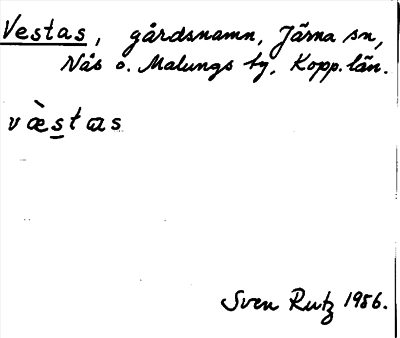 Vestas, gårdsnamn, Järna sn,
Nås o. Malungs tg, Kopp. län.
væ̀stɑs
Sven Rutz 1986.